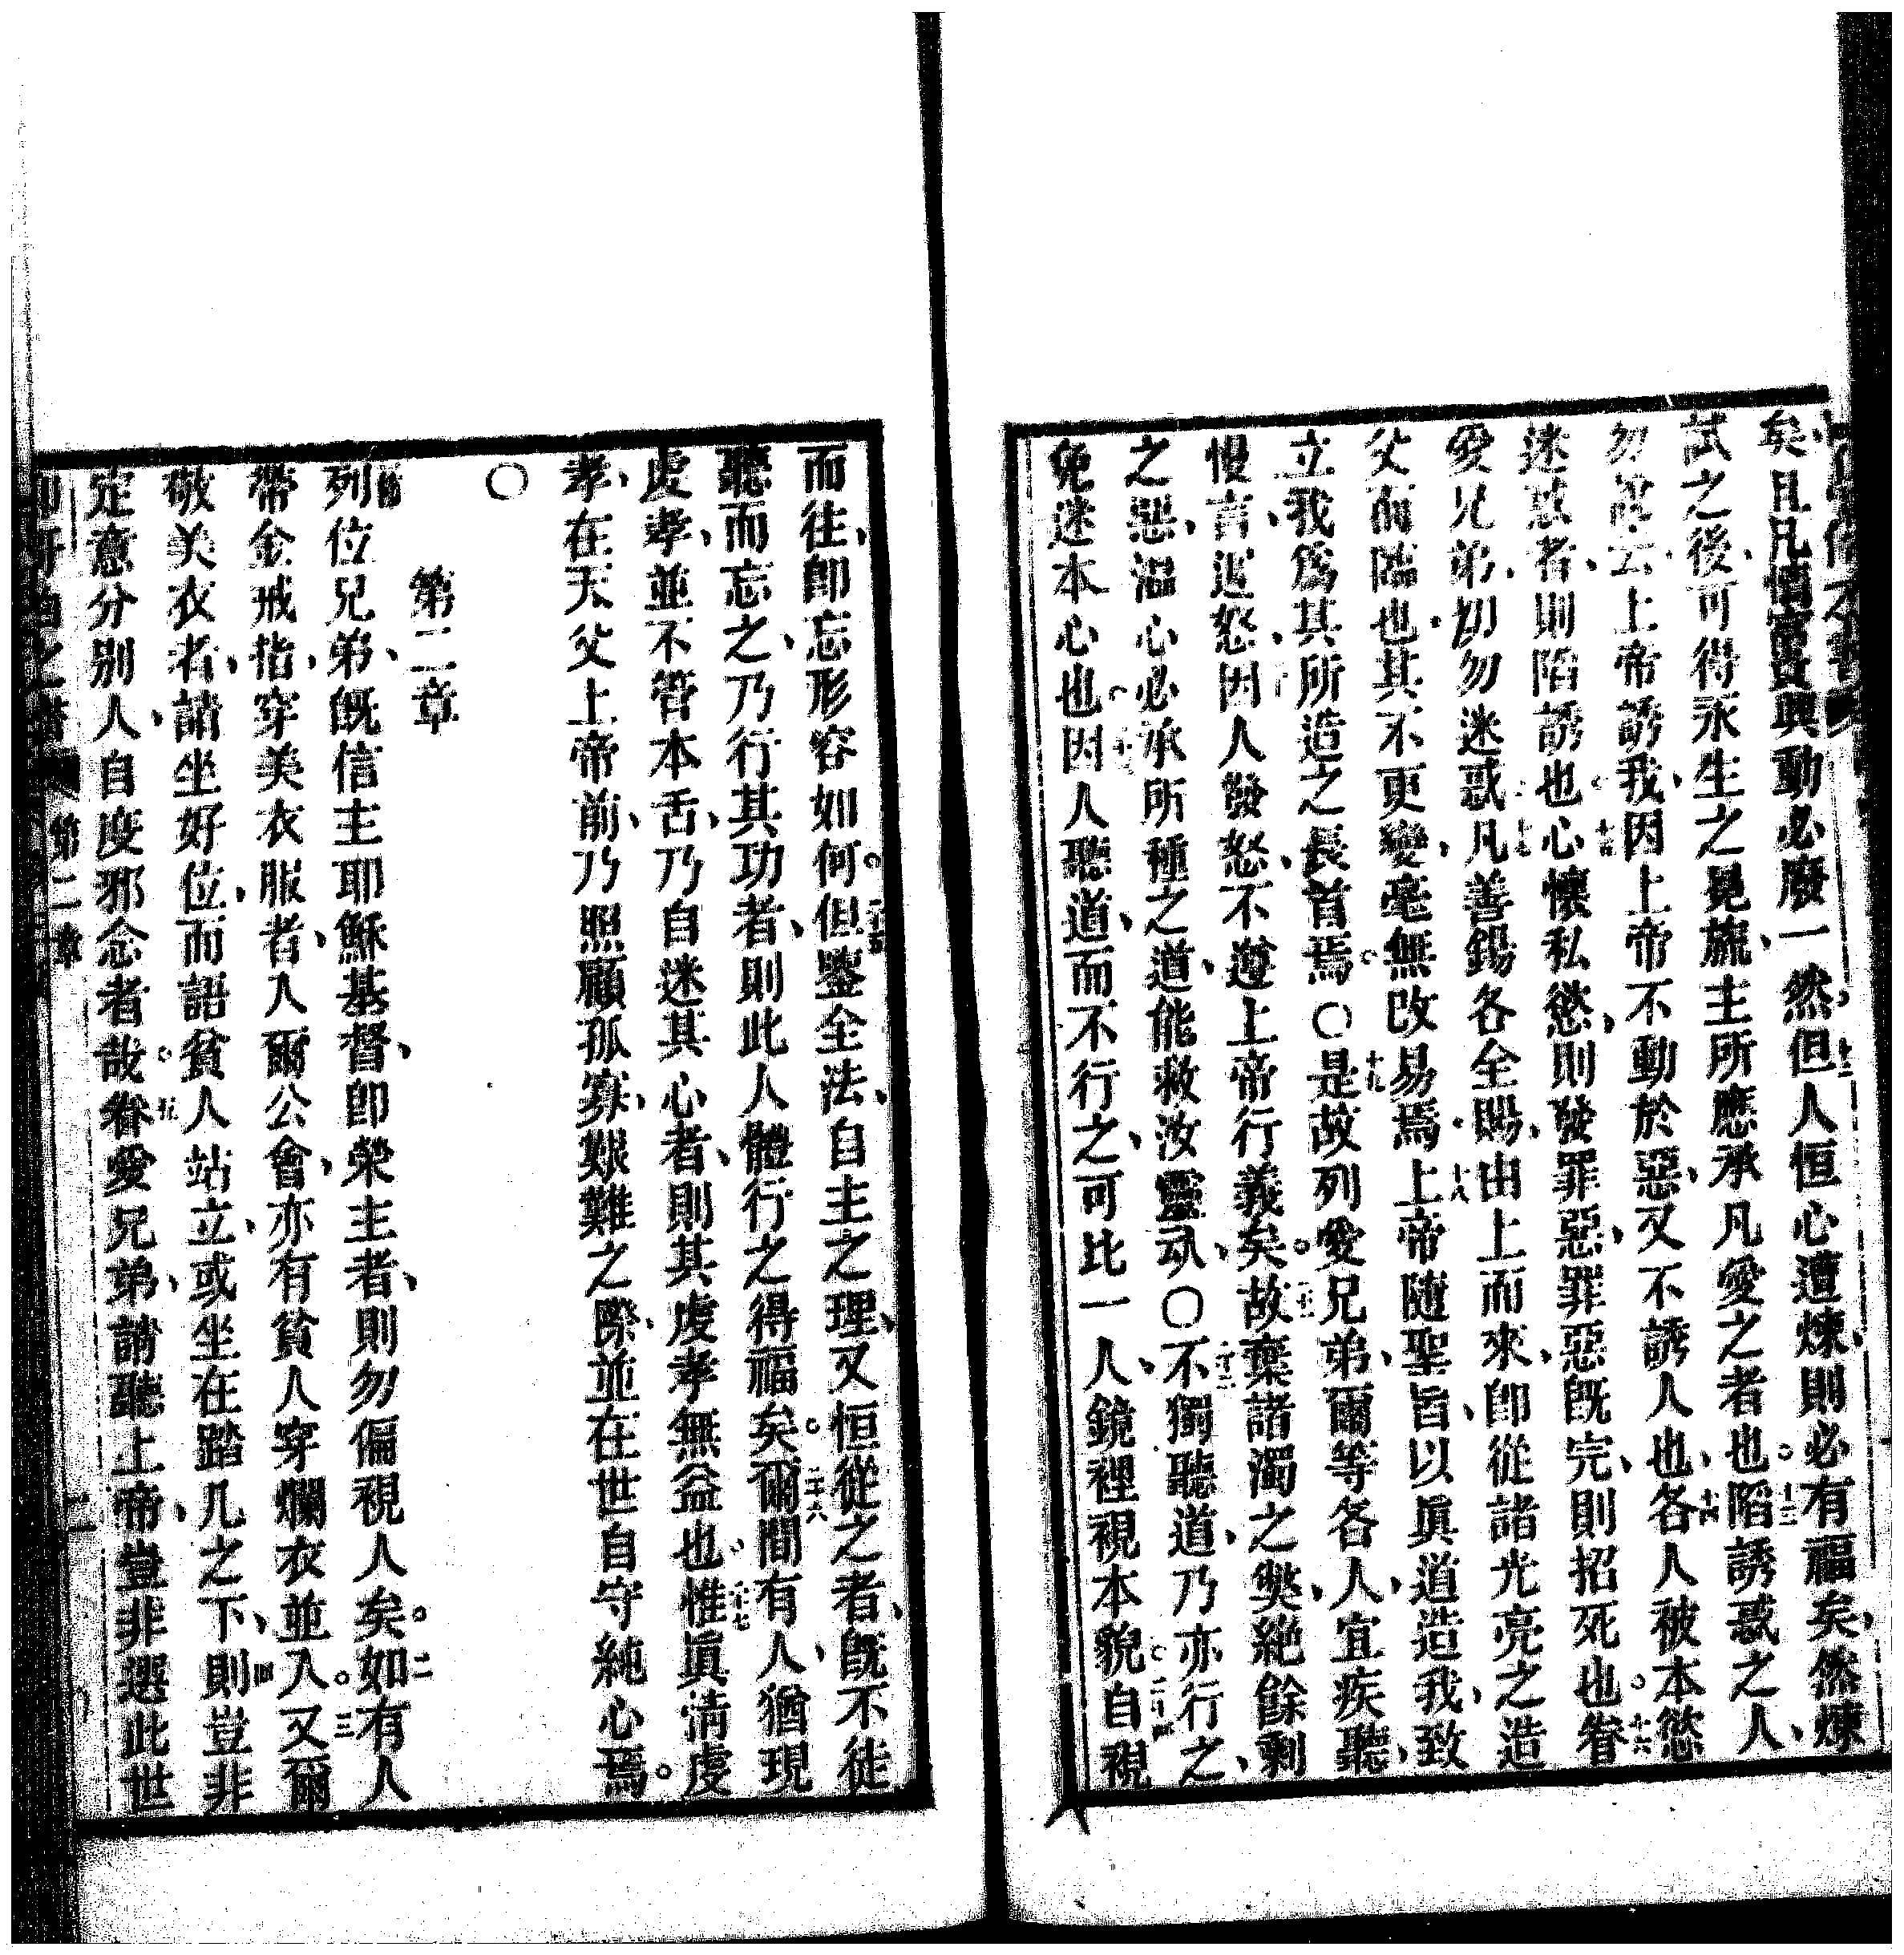 矣、且凡慣富貴興動必廢一然、十二但人恒心遭煉、則必有福矣、然煉
試之後、可得永生之冕旒、主所應承凡愛之者也。十三陷誘惑之人、
勿說云、上帝誘我、因上帝不動於惡、又不誘人也、十四各人被本慾
迷惑者、則陷誘也。十五心懷私慾、則發罪惡、罪惡既完、則招死也。十六眷
愛兄弟、切勿迷惑。十七凡善錫各全賜、由上而來、卽從諸光亮之造
父而臨也、其不更變、毫無改易焉。十八上帝隨聖旨、以眞道造我、致
立我爲其所造之長首焉。〇十九是故列愛兄弟、爾等各人、宜疾聽、
慢言、遲怒、二十因人發怒、不遵上帝行義矣。二十一故棄諸濁之獘、絕餘剩
之惡、溫心必承所種之道、能救汝靈矣、〇二十二不獨聽道、乃亦行之、
免迷本心也。二十三因人聽道、而不行之、可比一人、鏡裡視本貌。二十四自視
而往、卽忘形容如何。二十五但鑒全法、自主之理、又恒從之者、既不徒
聽而忘之、乃行其功者、則此人體行之得福矣。二十六爾間有人、猶現
虔孝、並不管本舌、乃自迷其心者、則其虔孝無益也。二十七惟眞淸虔
孝、在天父上帝前、乃照顧孤寡、艱難之際、並在世自守純心焉。
〇
第二章
列位兄弟、既信主耶穌基督、卽榮主者、則勿偏視人矣。二如有人
帶金戒指、穿美衣服者、入爾公會、亦有貧人穿爛衣並入。三又爾
敬美衣者、請坐好位、而語貧人站立、或坐在踏几之下、四則豈非
定意分別人、自度邪念者哉。五眷愛兄弟、請聽上帝、豈非選此世
第二章
二